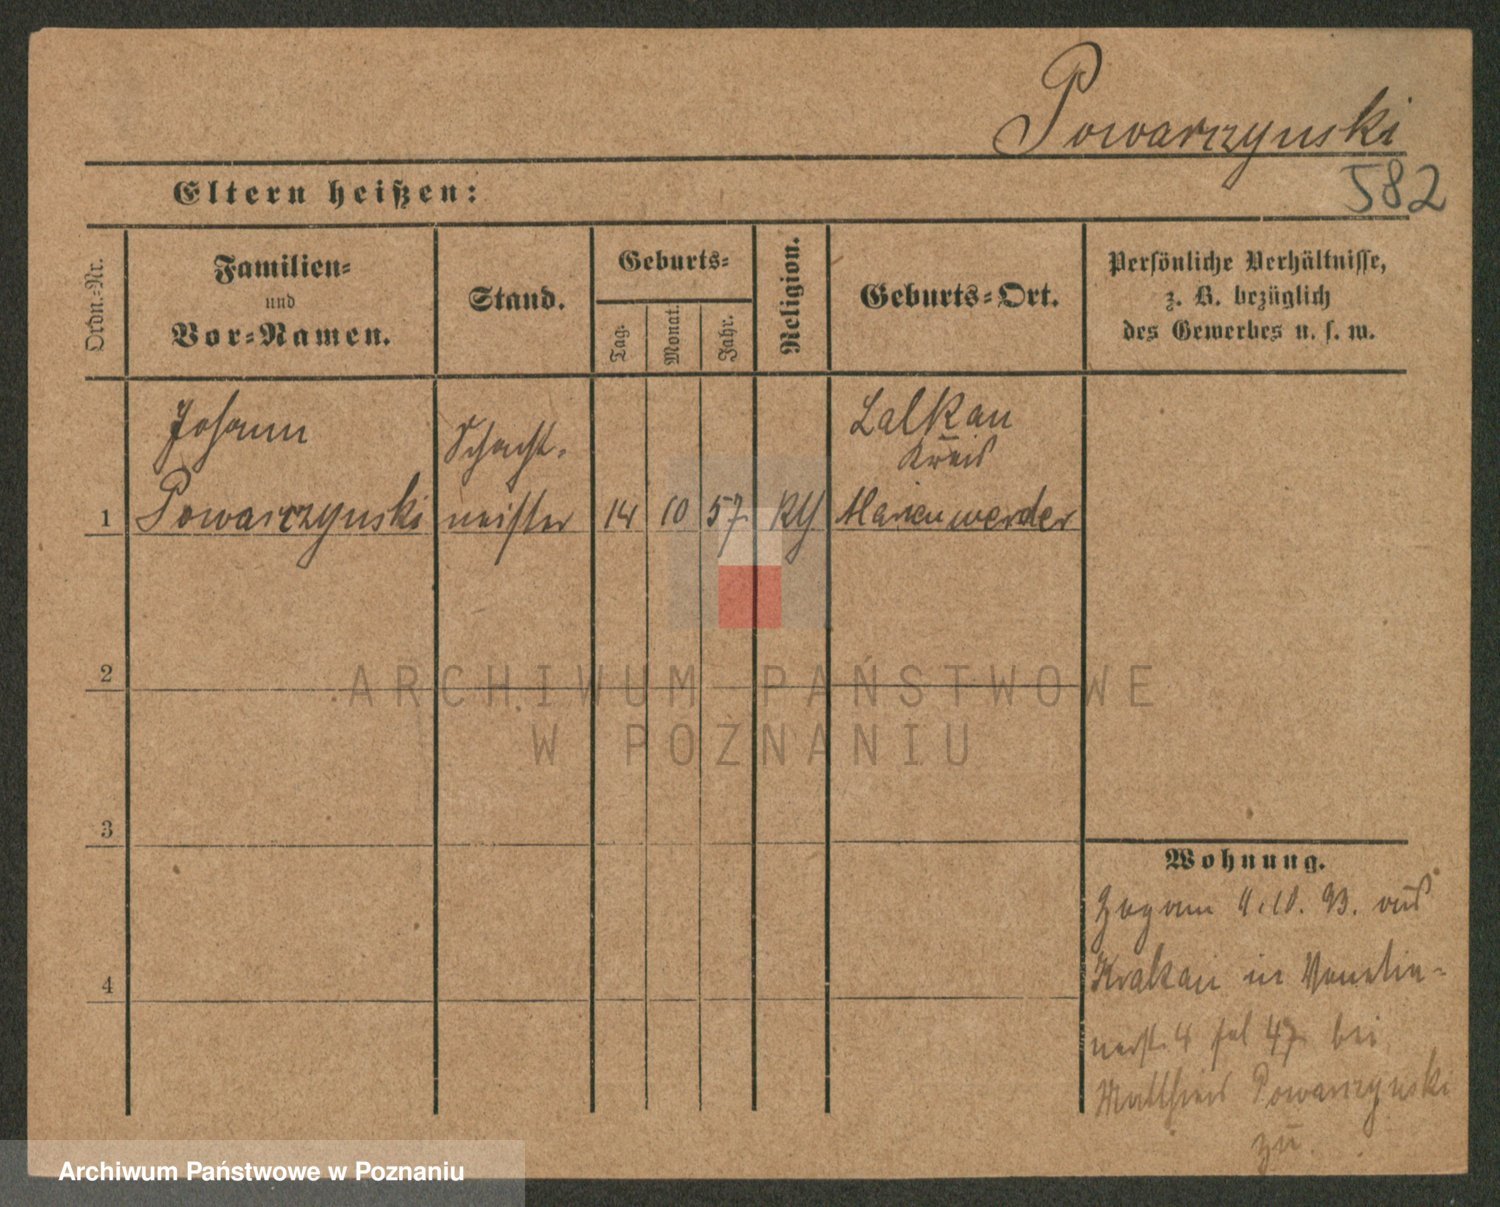 Powarczynski
582
Eltern heißen:
Ordn.-Nr.
Familien-
und
Vor-Namen.
Stand.
Geburts-
Tag.
Monat.
Jahr.
Religion.
Geburts-Ort.
Persönliche Verhältnisse,
z. B. bezüglich
des Gewerbes u. s. w.
Johann
Powarczynski
Schacht-
meister
14
10
57
Lalkau
Kreis
Marienwerder
1
2
3
4
Wohnung.
Zog am 4.10. 93. aus
Krakau in
4 fol 47 bei
Powarczynski
zu.
ARCHIWUM PAŃSTWOWE
W POZNANIU
Archiwum Państwowe w Poznaniu